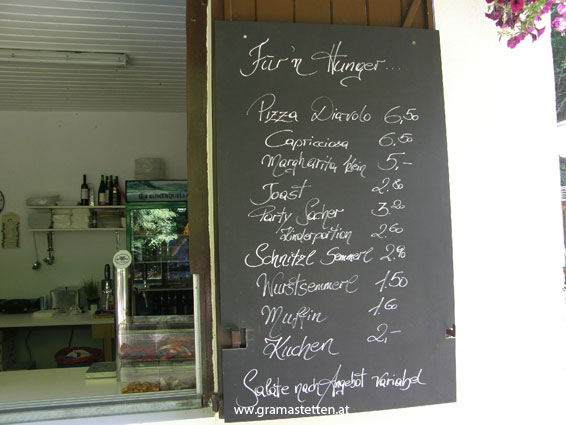 Für'n Hunger....
Pizza Diavolo 6,50
Capricciosa 6,50
Margharita klein 5,-
Toast 2.80
Party Sacher 3.20
Kinderportion 2.60
Schnitzl Semmerl 2.90
Wurstsemmerl 1.50
Muffin 1.60
Kuchen 2,-
Salate nach Angebot variabel
www.gramastetten.at